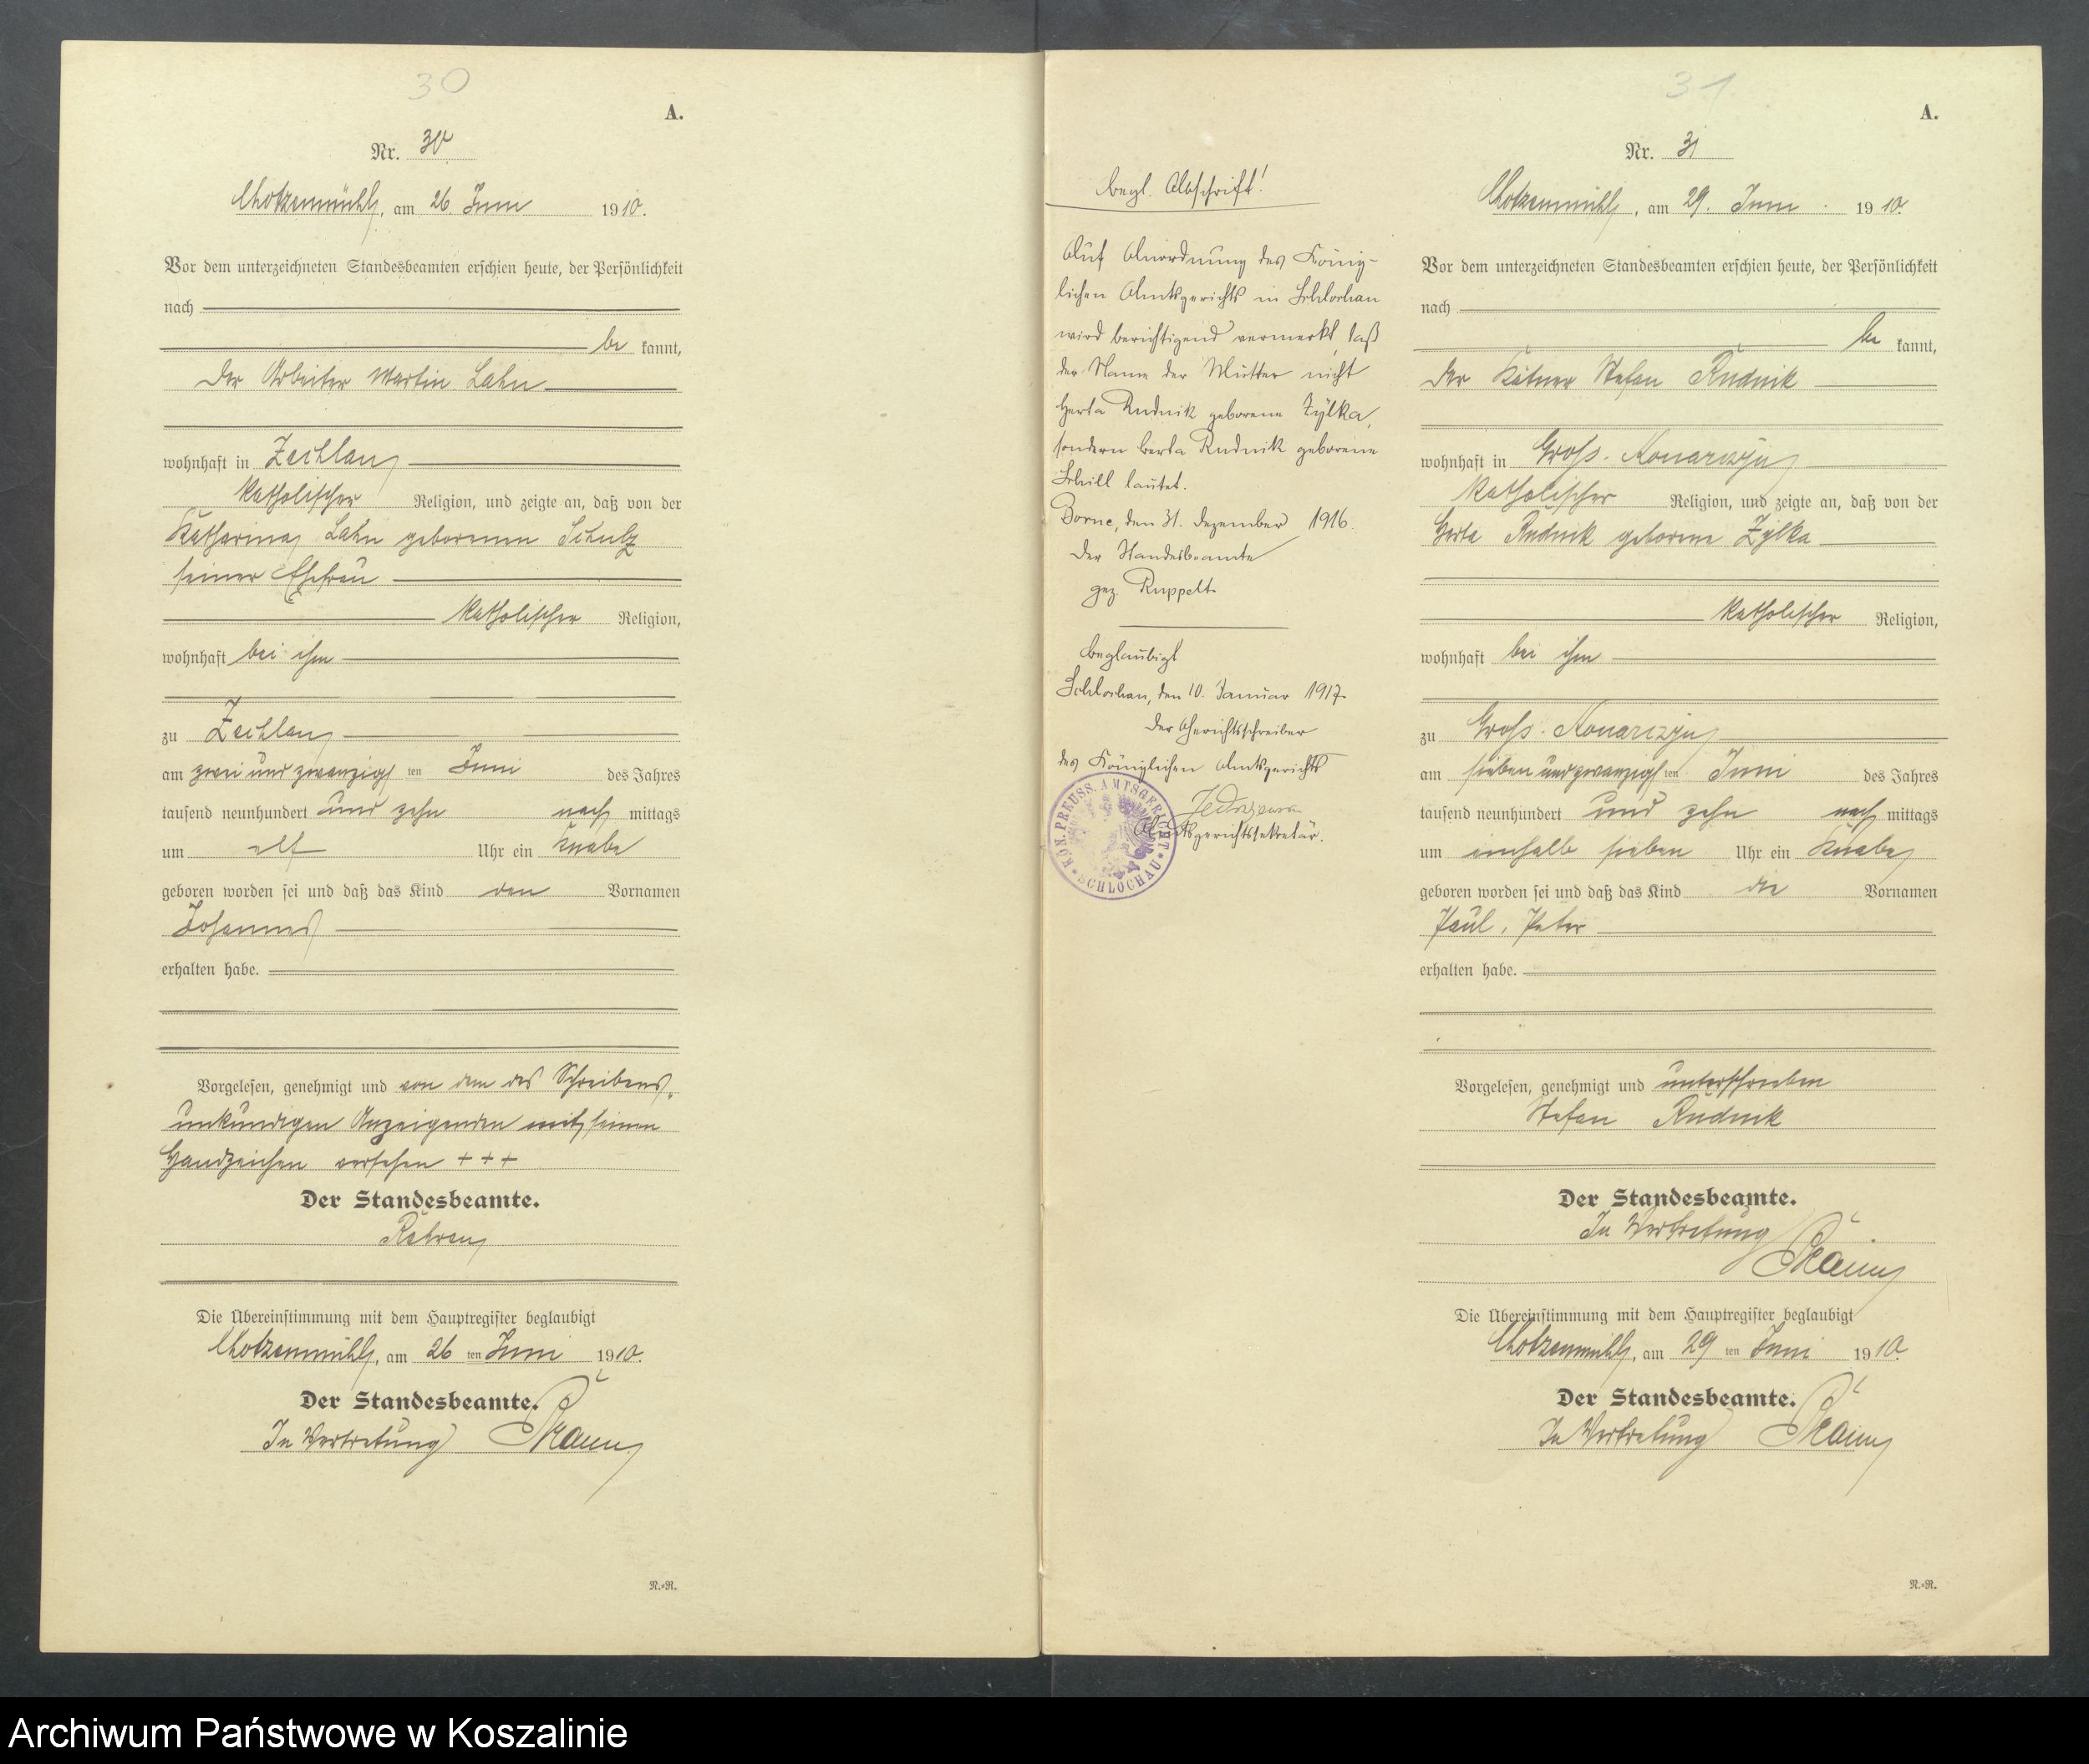 30
A.
Nr. 30
Chotzenmühl, am 26. Juni 1910.
Vor dem unterzeichneten Standesbeamten erschien heute, der Persönlichkeit
nach
be kannt,
der Arbeiter Martin Lahn
wohnhaft in Zechlau
katholischer Religion, und zeigte an, daß von der
Katharina Lahn geborenen Schulz
seiner Ehefrau
katholischer Religion,
wohnhaft bei ihm
zu Zechlau
am zwei und zwanzigsten Juni des Jahres
tausend neunhundert und zehn nach mittags
um elf Uhr ein Knabe
geboren worden sei und daß das Kind den Vornamen
Johannes
erhalten habe.
Vorgelesen, genehmigt und von dem des Schreibens
unkundigen Anzeigenden mit seinem
Handzeichen versehen + + +
Der Standesbeamte.
Die Übereinstimmung mit dem Hauptregister beglaubigt
Chotzenmühl, am 26 ten Juni 1910.
Der Standesbeamte.
In Vertretung
N.-R.
begl. Abschrift!
Auf Anordnung des König-
lichen Amtsgerichts in Schlochau
wird berichtigend vermerkt, daß
der Name der Mutter nicht
Herta Rudnik geborene Zylka,
sondern Berta Rudnik geborene
Schill lautet.
Borne, den 31. Dezember 1916.
Der Standesbeamte
gez. Ruppelt.
Beglaubigt
Schlochau, den 10. Januar 1917.
Der Gerichtsschreiber
des Königlichen Amtsgerichts
Amtsgerichtssekretär.
KÖN. PREUSS. AMTSGERICHT
SCHLOCHAU
31
A.
Nr. 31
Chotzenmühl, am 29. Juni 1910.
Vor dem unterzeichneten Standesbeamten erschien heute, der Persönlichkeit
nach
be kannt,
der Kätner Stefan Rudnik
wohnhaft in Groß-Konarczyn
katholischer Religion, und zeigte an, daß von der
Herta Rudnik geborene Zylka
katholischer Religion,
wohnhaft bei ihm
zu Groß-Konarczyn
am sieben und zwanzigsten Juni des Jahres
tausend neunhundert und zehn nach mittags
um einhalb sieben Uhr ein Knabe
geboren worden sei und daß das Kind die Vornamen
Paul, Peter
erhalten habe.
Vorgelesen, genehmigt und unterschrieben
Stefan Rudnik
Der Standesbeamte.
In Vertretung
Die Übereinstimmung mit dem Hauptregister beglaubigt
Chotzenmühl, am 29 ten Juni 1910.
Der Standesbeamte.
In Vertretung
N.-R.
Archiwum Państwowe w Koszalinie